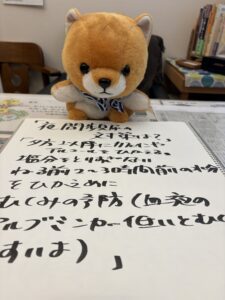 「夜間頻尿の
対すすは?
「夕方以降にカフェインや
アルコールをひかえる
塩分をとりすぎない
ねる前2〜3時間前の水分
をひかえめに
むくみの予防(血液の
アルブミンが低いとむく
すいよ)
」